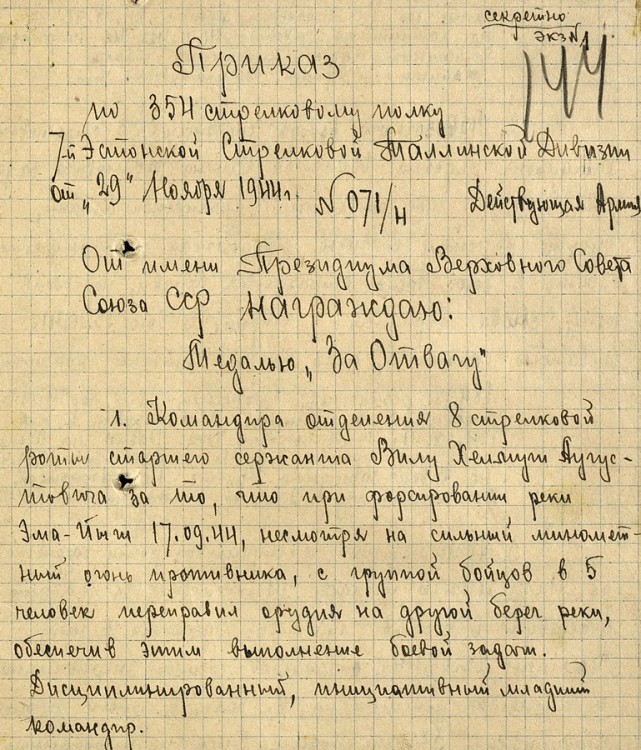 секретно
экз N1
144
Приказ
по 354 стрелковому полку
7-й Эстонской Стрелковой Таллинской Дивизии
от „29" Ноября 1944г. N 071/н Действующая Армия
От имени Президиума Верховного Совета
Союза ССР награждаю:
Медалью „За Отвагу"
1. Командира отделения 8 стрелковой
роты старшего сержанта Вилу Хельмут Аугус-
товича за то, что при форсировании реки
Эма-Йыги 17.09.44, несмотря на сильный миномет-
ный огонь противника, с группой бойцов в 5
человек переправил орудия на другой берег реки,
обеспечив этим выполнение боевой задачи.
Дисциплинированный, инициативный младший
командир.